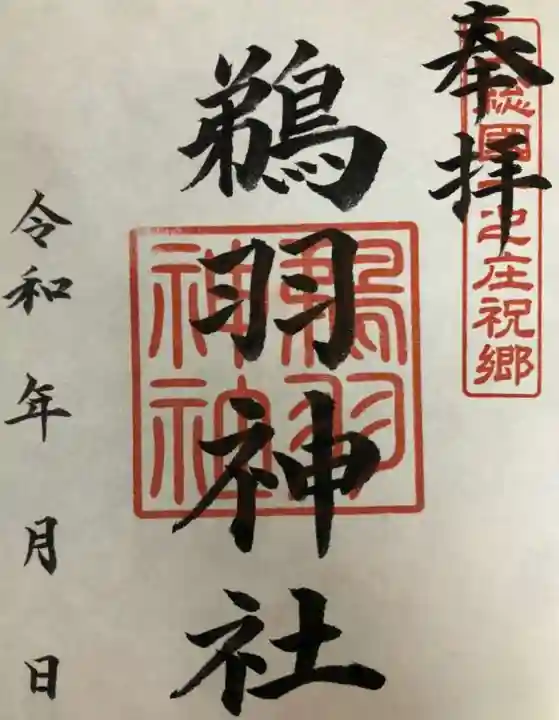 奉拝
総國
之庄祝郷
鵜羽神社
鵜羽
神社
令和 年 月 日